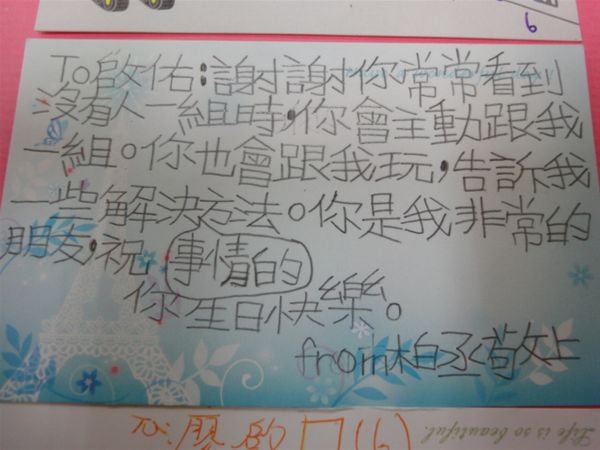 6
To啟佑：謝謝你常常看到
沒有人一組時，你會主動跟我
一組。你也會跟我玩，告訴我
一些解決方法。你是我非常的
朋友，祝 事情的
你生日快樂。
from柏丞敬上
Life is so beautiful.